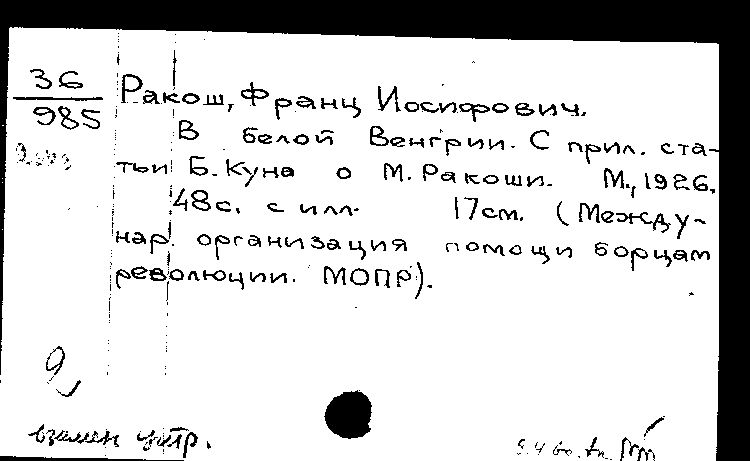 36
985
Ракош, Франц Иосифович.
В белой Венгрии. С прил. ста-
тьи Б. Куна о М. Ракоши. М., 1926.
48с. с илл. 17см. (Между-
нар. организация помощи борцам
революции. МОПР).
взамен утр.